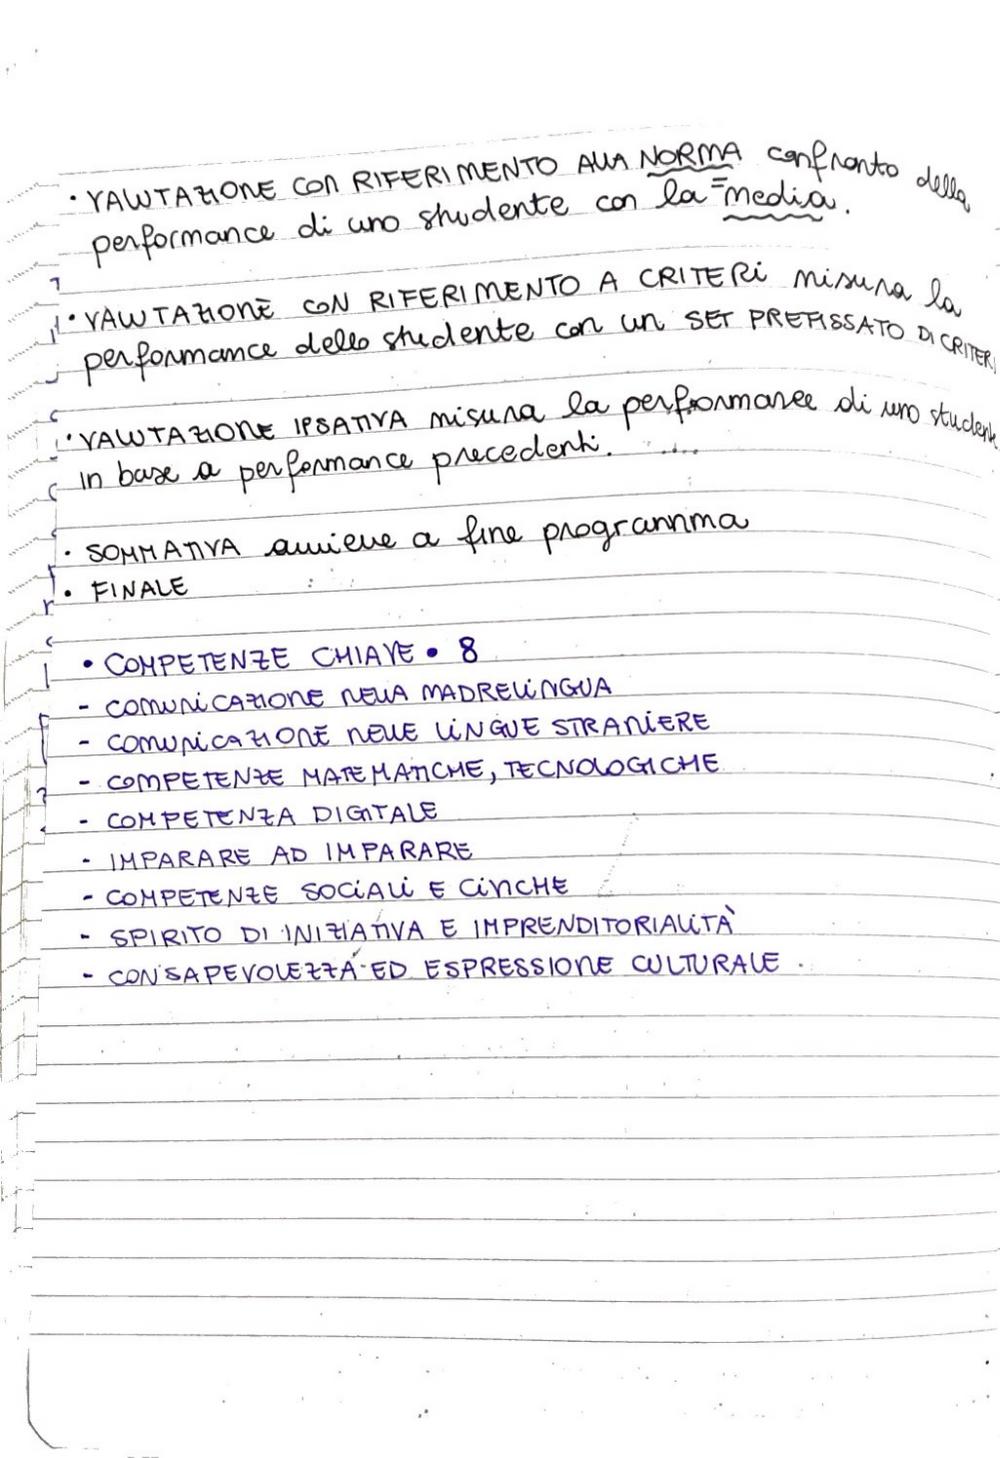 • VALUTAZIONE CON RIFERIMENTO ALLA NORMA confronto della
performance di uno studente con la = media.
• VALUTAZIONE CON RIFERIMENTO A CRITERI misura la
performance dello studente con un SET PREFISSATO DI CRITERI
• VALUTAZIONE IPSATIVA misura la performance di uno student
in base a performance precedenti.
• SOMMATIVA avviene a fine programma
• FINALE
• COMPETENZE CHIAVE • 8
- COMUNICAZIONE NELLA MADRELINGUA
- COMUNICAZIONE NELLE LINGUE STRANIERE
- COMPETENZE MATEMATICHE, TECNOLOGICHE
- COMPETENZA DIGITALE
- IMPARARE AD IMPARARE
- COMPETENZE SOCIALI E CIVICHE
- SPIRITO DI INIZIATIVA E IMPRENDITORIALITÀ
- CONSAPEVOLEZZA ED ESPRESSIONE CULTURALE.